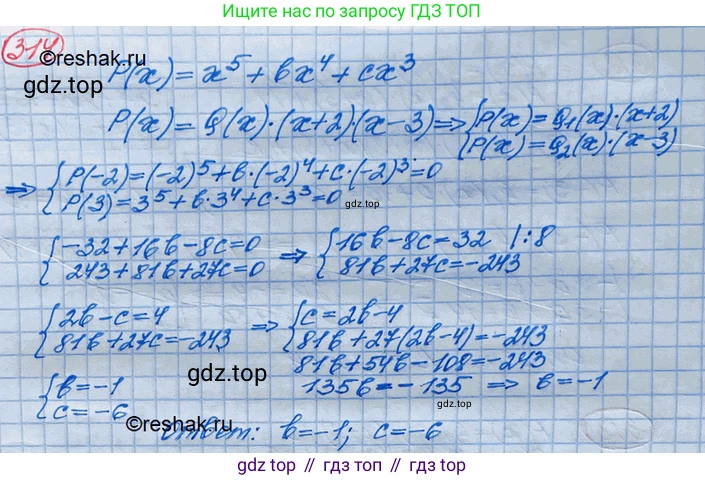 Ищите нас по запросу ГДЗ ТОП
314
©reshak.ru
gdz.top
P(x) = x⁵ + bx⁴ + cx³
P(x) = Q(x)·(x+2)(x-3) => { P(x) = Q₁(x)·(x+2)
P(x) = Q₂(x)·(x-3)
=> { P(-2) = (-2)⁵ + b·(-2)⁴ + c·(-2)³ = 0
P(3) = 3⁵ + b·3⁴ + c·3³ = 0
gdz.top
{ -32 + 16b - 8c = 0 => { 16b - 8c = 32 |:8
243 + 81b + 27c = 0 81b + 27c = -243
{ 2b - c = 4 => { c = 2b - 4
81b + 27c = -243 81b + 27(2b - 4) = -243
gdz.top
81b + 54b - 108 = -243
{ b = -1 135b = -135 => b = -1
c = -6
gdz.top
©reshak.ru
Ответ: b = -1; c = -6
gdz top // гдз топ // gdz.top